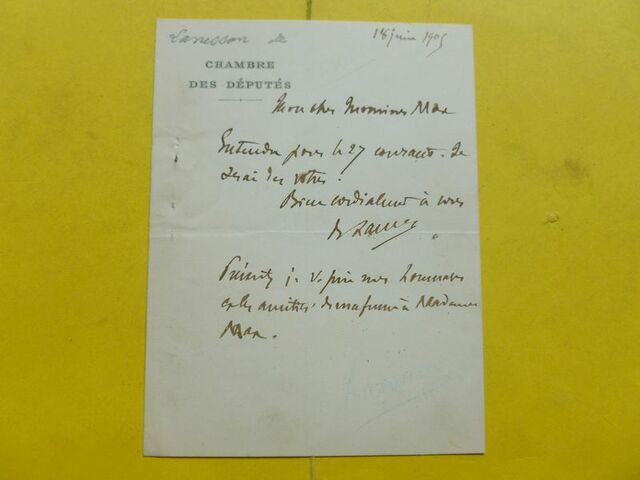 Lanessan de
18 juin 1905
CHAMBRE
DES DÉPUTÉS
Mon cher Monsieur Max
Entendu pour le 27 courant. Je
serai des vôtres.
Bien cordialement à vous
de Lanessan
Présentez je v. prie mes hommages
et les amitiés de ma femme à Madame
Max.